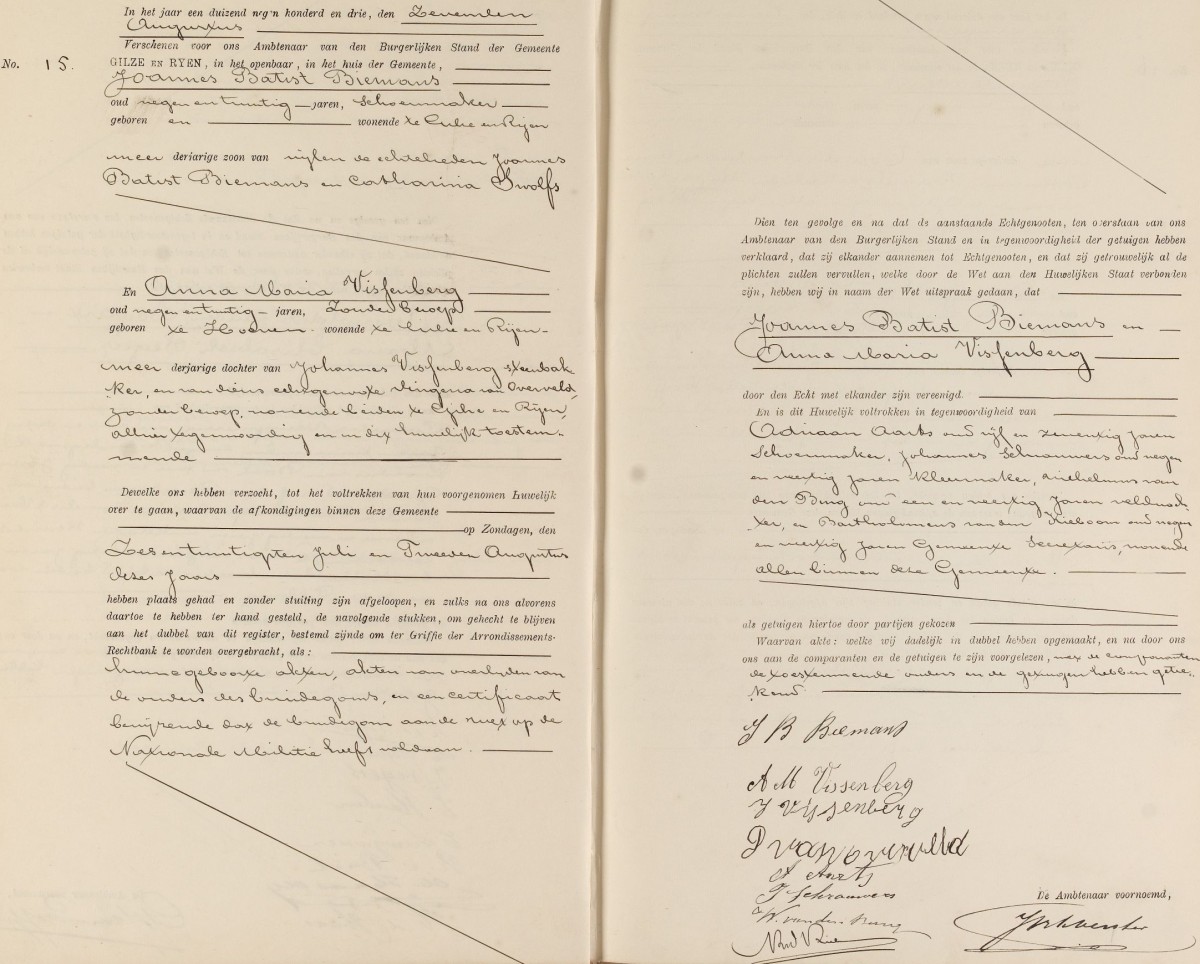 In het jaar een duizend negen honderd en drie, den Zevenden
Augustus
Verschenen voor ons Ambtenaar van den Burgerlijken Stand der Gemeente
No. 15. GILZE EN RYEN, in het openbaar, in het huis der Gemeente,
Joannes Batist Biemans
oud negen en twintig jaren, schoenmaker
geboren en wonende te Gilze en Rijen
meer derjarige zoon van wijlen de echtelieden Joannes
Batist Biemans en Catharina Swolfs
En Anna Maria Vissenberg
oud negen en twintig jaren, zonder beroep
geboren te Hoeven wonende te Gilze en Rijen
meer derjarige dochter van Johannes Vissenberg steenbak
ker, en van diens echtgenoote Dingena van Overveld,
zonder beroep, wonende beiden te Gilze en Rijen,
alhier tegenwoordig en in dit huwelijk toestem-
mende
Dewelke ons hebben verzocht, tot het voltrekken van hun voorgenomen huwelijk
over te gaan, waarvan de afkondigingen binnen deze Gemeente
op Zondagen, den
Zes en twintigsten Juli en Tweeden Augustus
dezes Jaars
hebben plaats gehad en zonder stuiting zijn afgeloopen, en zulks na ons alvorens
daartoe te hebben ter hand gesteld, de navolgende stukken, om gehecht te blijven
aan het dubbel van dit register, bestemd zijnde om ter Griffie der Arrondissements-
Rechtbank te worden overgebracht, als:
hunne geboorte akten, akten van overlijden van
de ouders des bruidegoms, en een certificaat
bewijzende dat de bruidegom aan de wet op de
Nationale Militie heeft voldaan.
Dien ten gevolge en na dat de aanstaande Echtgenooten, ten overstaan van ons
Ambtenaar van den Burgerlijken Stand en in tegenwoordigheid der getuigen hebben
verklaard, dat zij elkander aannemen tot Echtgenooten, en dat zij getrouwelijk al de
plichten zullen vervullen, welke door de Wet aan den Huwelijken Staat verbonden
zijn, hebben wij in naam der Wet uitspraak gedaan, dat
Joannes Batist Biemans en
Anna Maria Vissenberg
door den Echt met elkander zijn vereenigd.
En is dit Huwelijk voltrokken in tegenwoordigheid van
Adriaan Aarts oud vijf en zeventig jaren
Schoenmaker, Johannes Schrauwers oud negen
en veertig jaren kleermaker, Wilhelmus van
den Burg oud een en veertig Jaren veldwach
ter, en Bartholomeus van den Kieboom oud negen
en veertig Jaren Gemeente Secretaris, wonende
allen binnen deze Gemeente.
als getuigen hiertoe door partijen gekozen
Waarvan akte: welke wij dadelijk in dubbel hebben opgemaakt, en na door ons
ons aan de comparanten en de getuigen te zijn voorgelezen, met de comparanten
de toestemmende ouders en de getuigen hebben getee-
kend
J B Biemans
A M Vissenberg
J Vissenberg
D van overveld
A Aarts
J Schrauwers
W. van den Burg
De Ambtenaar voornoemd,